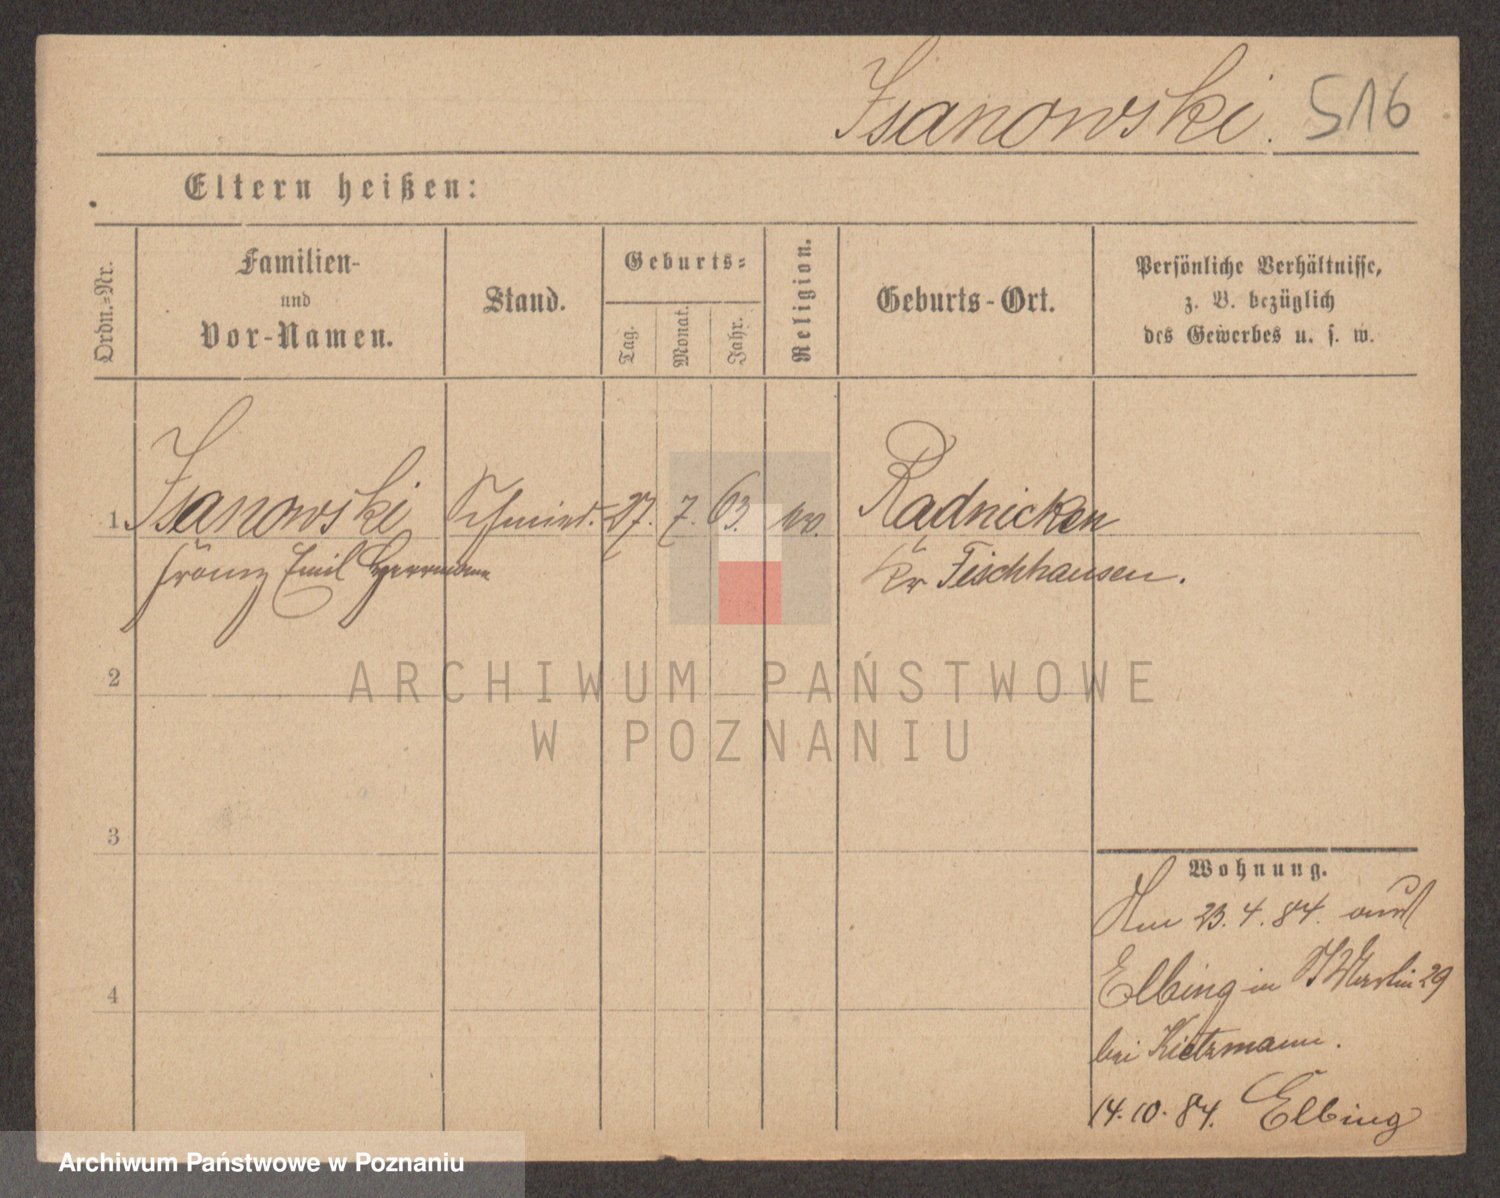 Isanowski. 516
Eltern heißen:
Ordn.=Nr.
Familien-
und
Vor-Namen.
Stand.
Geburts=
Tag.
Monat.
Jahr.
Religion.
Geburts-Ort.
Persönliche Verhältnisse,
z. B. bezüglich
des Gewerbes u. s. w.
1 Isanowski Schmied. 27. 7. 63. ev. Radnicken
Franz Emil Herrmann Kr Fischhausen.
2
3
4
Wohnung.
Am 23. 4. 84. aus
Elbing in 29
bei Kietzmann.
14. 10. 84. Elbing
ARCHIWUM PAŃSTWOWE
W POZNANIU
Archiwum Państwowe w Poznaniu